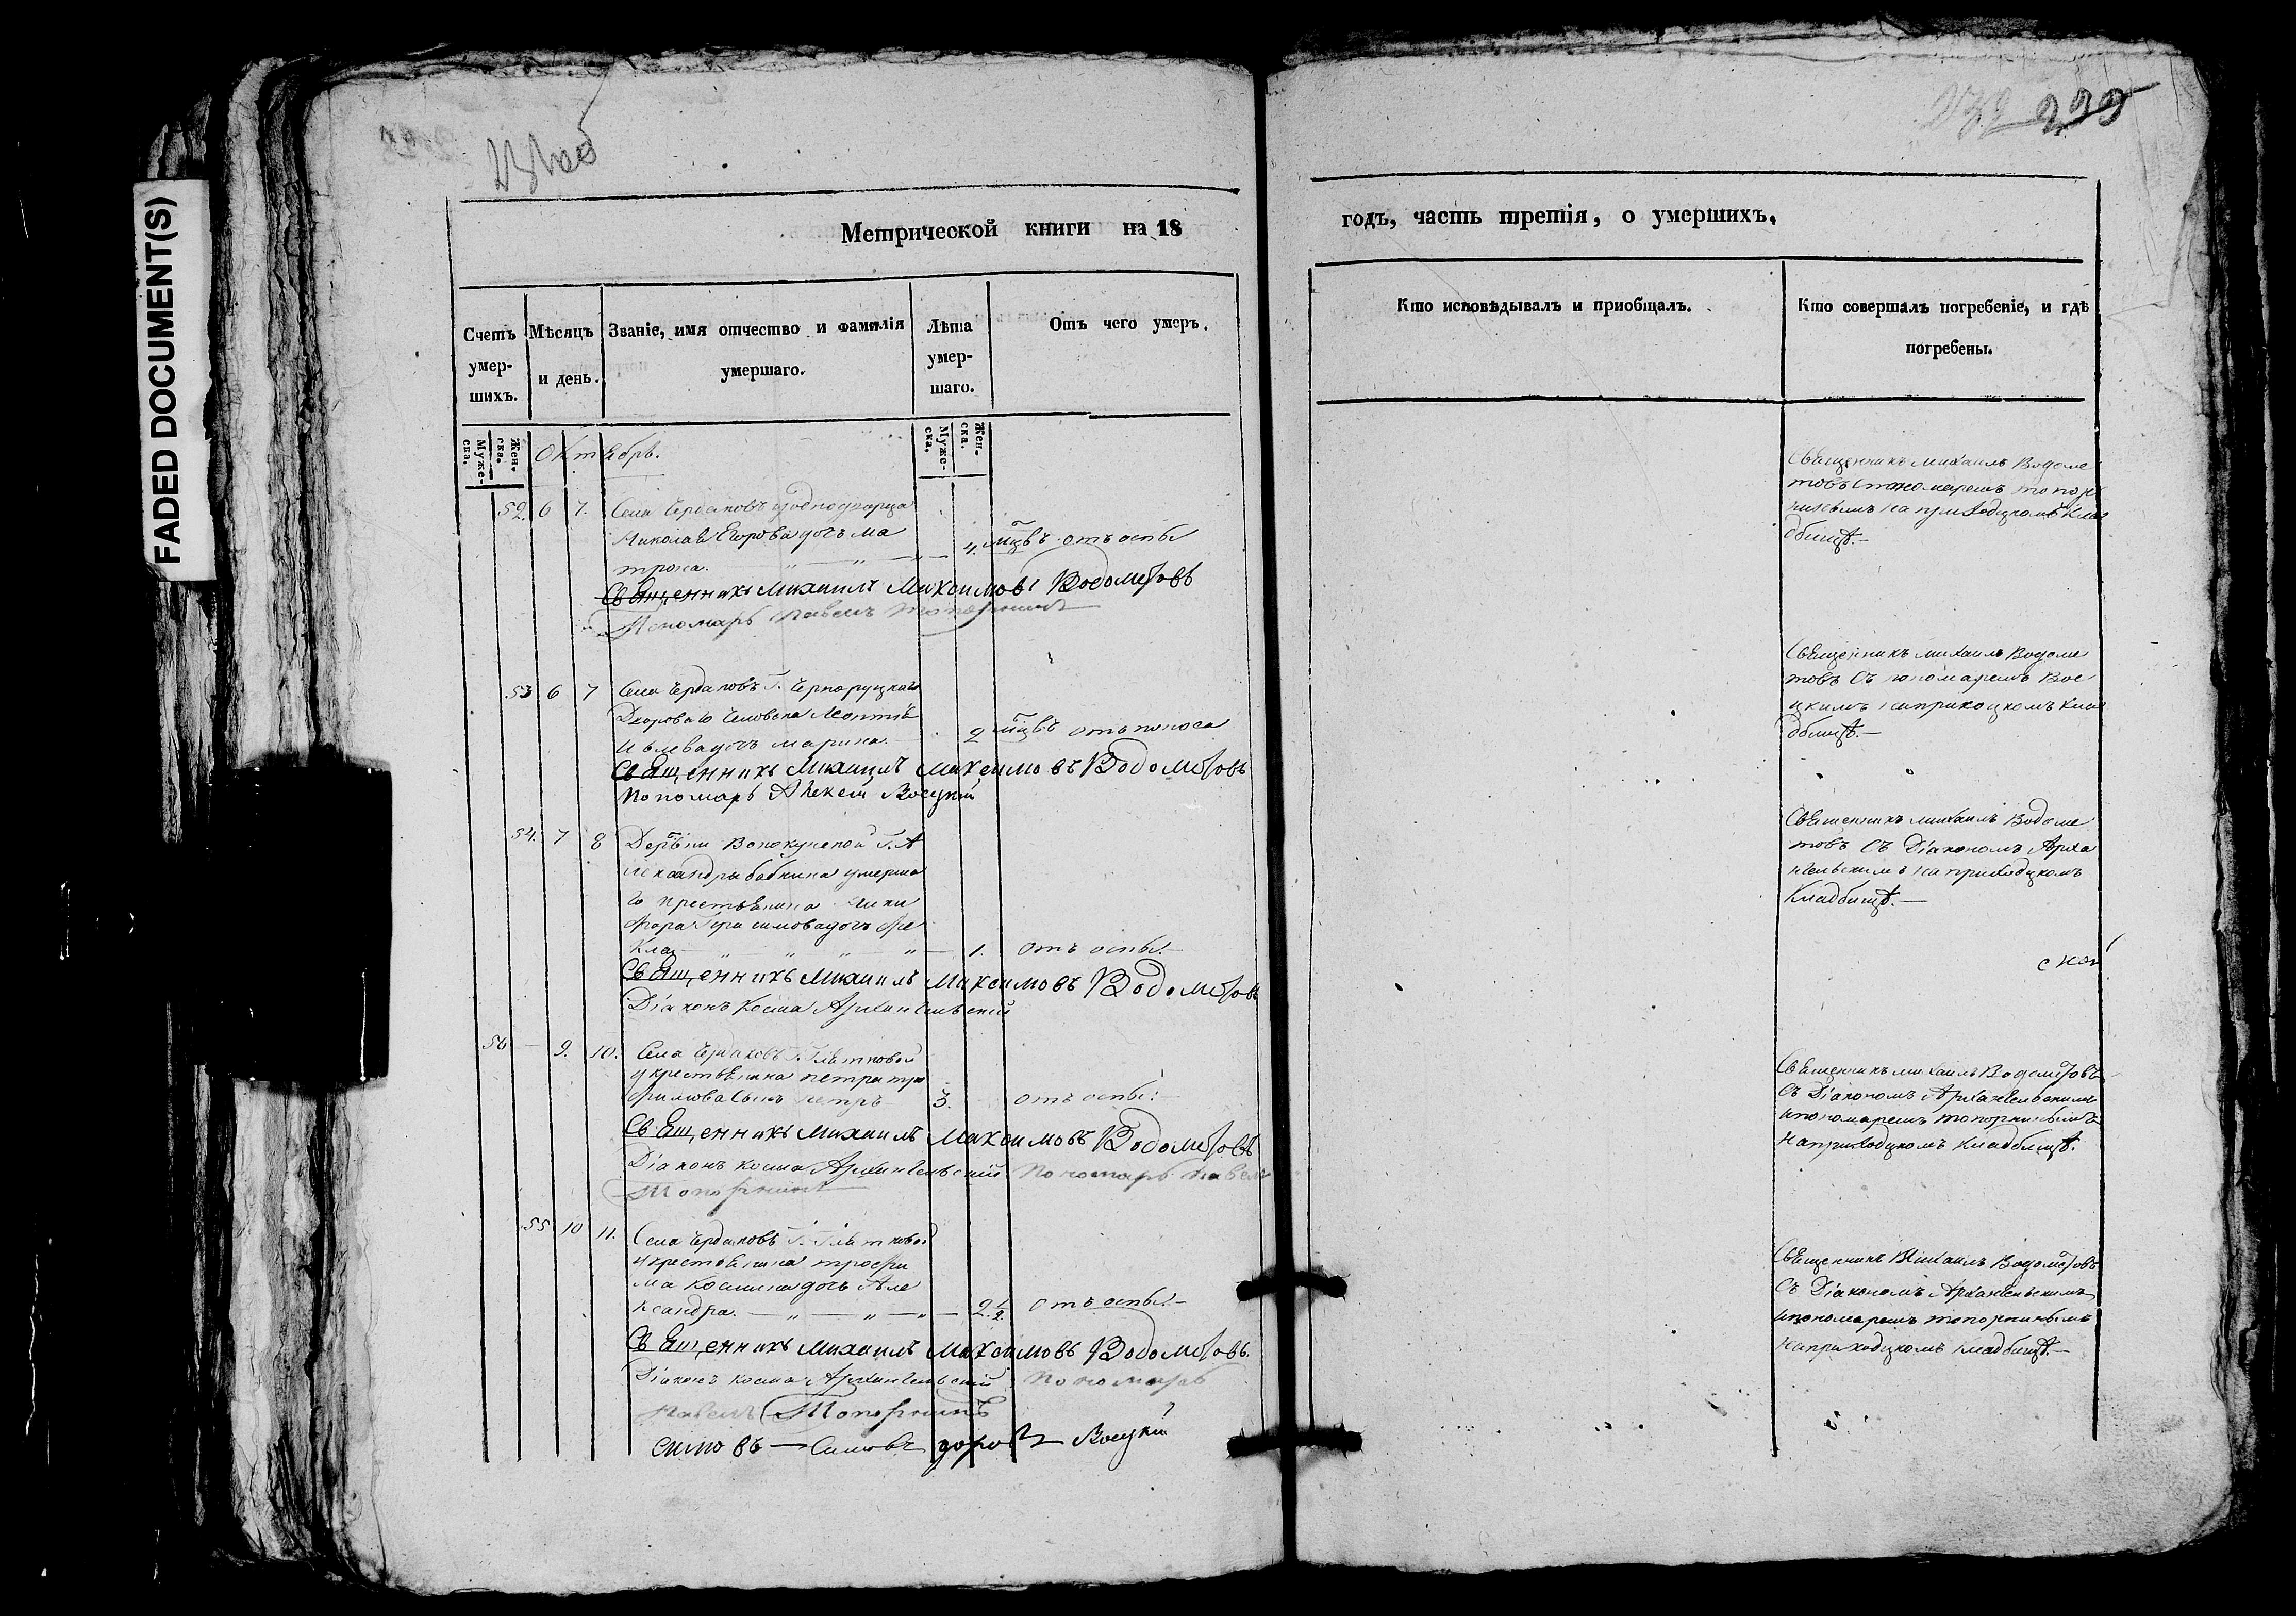 FADED DOCUMENT(S)
Метрической книги на 18
годъ, часть третія, о умершихъ.
Счетъ умер-шихъ.
Мѣсяцъ и день.
Званіе, имя отчество и фамилія умершаго.
Лѣта умер-шаго.
Отъ чего умеръ.
Кто исповѣдывалъ и приобщалъ.
Кто совершалъ погребеніе, и гдѣ погребены.
Муже-ска.
Жен-ска.
Муже-ска.
Жен-ска.
Октябрь.
52. 6 7. Села Чердаковъ однодворца
Николая Егорова дочь Ма
трона. 4. мцвъ отъ оспы
Священникъ Михаилъ Максимовъ Водометовъ
Пономарь Павелъ Топорнинъ
Священникъ Михаилъ Водоме
товъ с пономаремъ Топор
нинымъ на приходскомъ кла
дбищѣ.—
53 6 7 Села Чердаковъ Г. Черноруцкаго
Двороваго человека Леонтія
дочь Марина. 2 мцвъ отъ поноса
Священникъ Михаилъ Максимовъ Водометовъ
Пономарь Алексей Восцкій
Священникъ Михаилъ Водоме
товъ съ пономаремъ Вос
цкимъ на приходскомъ кла
дбищѣ.—
54. 7 8 Дерѣвни Вопокуненой Г. А
лександры Бабкина умерша
го крестьянина Ники
фора Герасимова дочь Фе
кла 1. отъ оспы.—
Священникъ Михаилъ Максимовъ Водометовъ
Діаконъ Косма Архангельскій
Священникъ Михаилъ Водоме
товъ съ Діакономъ Арха
нгельскимъ на приходскомъ
Кладбищѣ.—
56 — 9. 10. Села Чердаковъ Г.
крестьянина Петра Тро
фимова сынъ Петръ 3. отъ оспы.—
Священникъ Михаилъ Максимовъ Водометовъ
Діаконъ Косма Архангельскій Пономарь Павелъ
Топорнинъ
Священникъ Михаилъ Водометовъ
съ Діакономъ Архангельскимъ
и пономаремъ Топорнинымъ
на приходскомъ кладбищѣ.
55 10 11. Села Чердаковъ Г.
крестьянина Трофи
ма Космина дочь Але
ксандра. 2 1/2 отъ оспы.—
Священникъ Михаилъ Максимовъ Водометовъ.
Діаконъ Косма Архангельскій Пономарь
Павелъ Топорнинъ
Восцкій
Священникъ Михаилъ Водометовъ
съ Діакономъ Архангельскимъ
и пономаремъ Топорнинымъ
на приходскомъ кладбищѣ.—